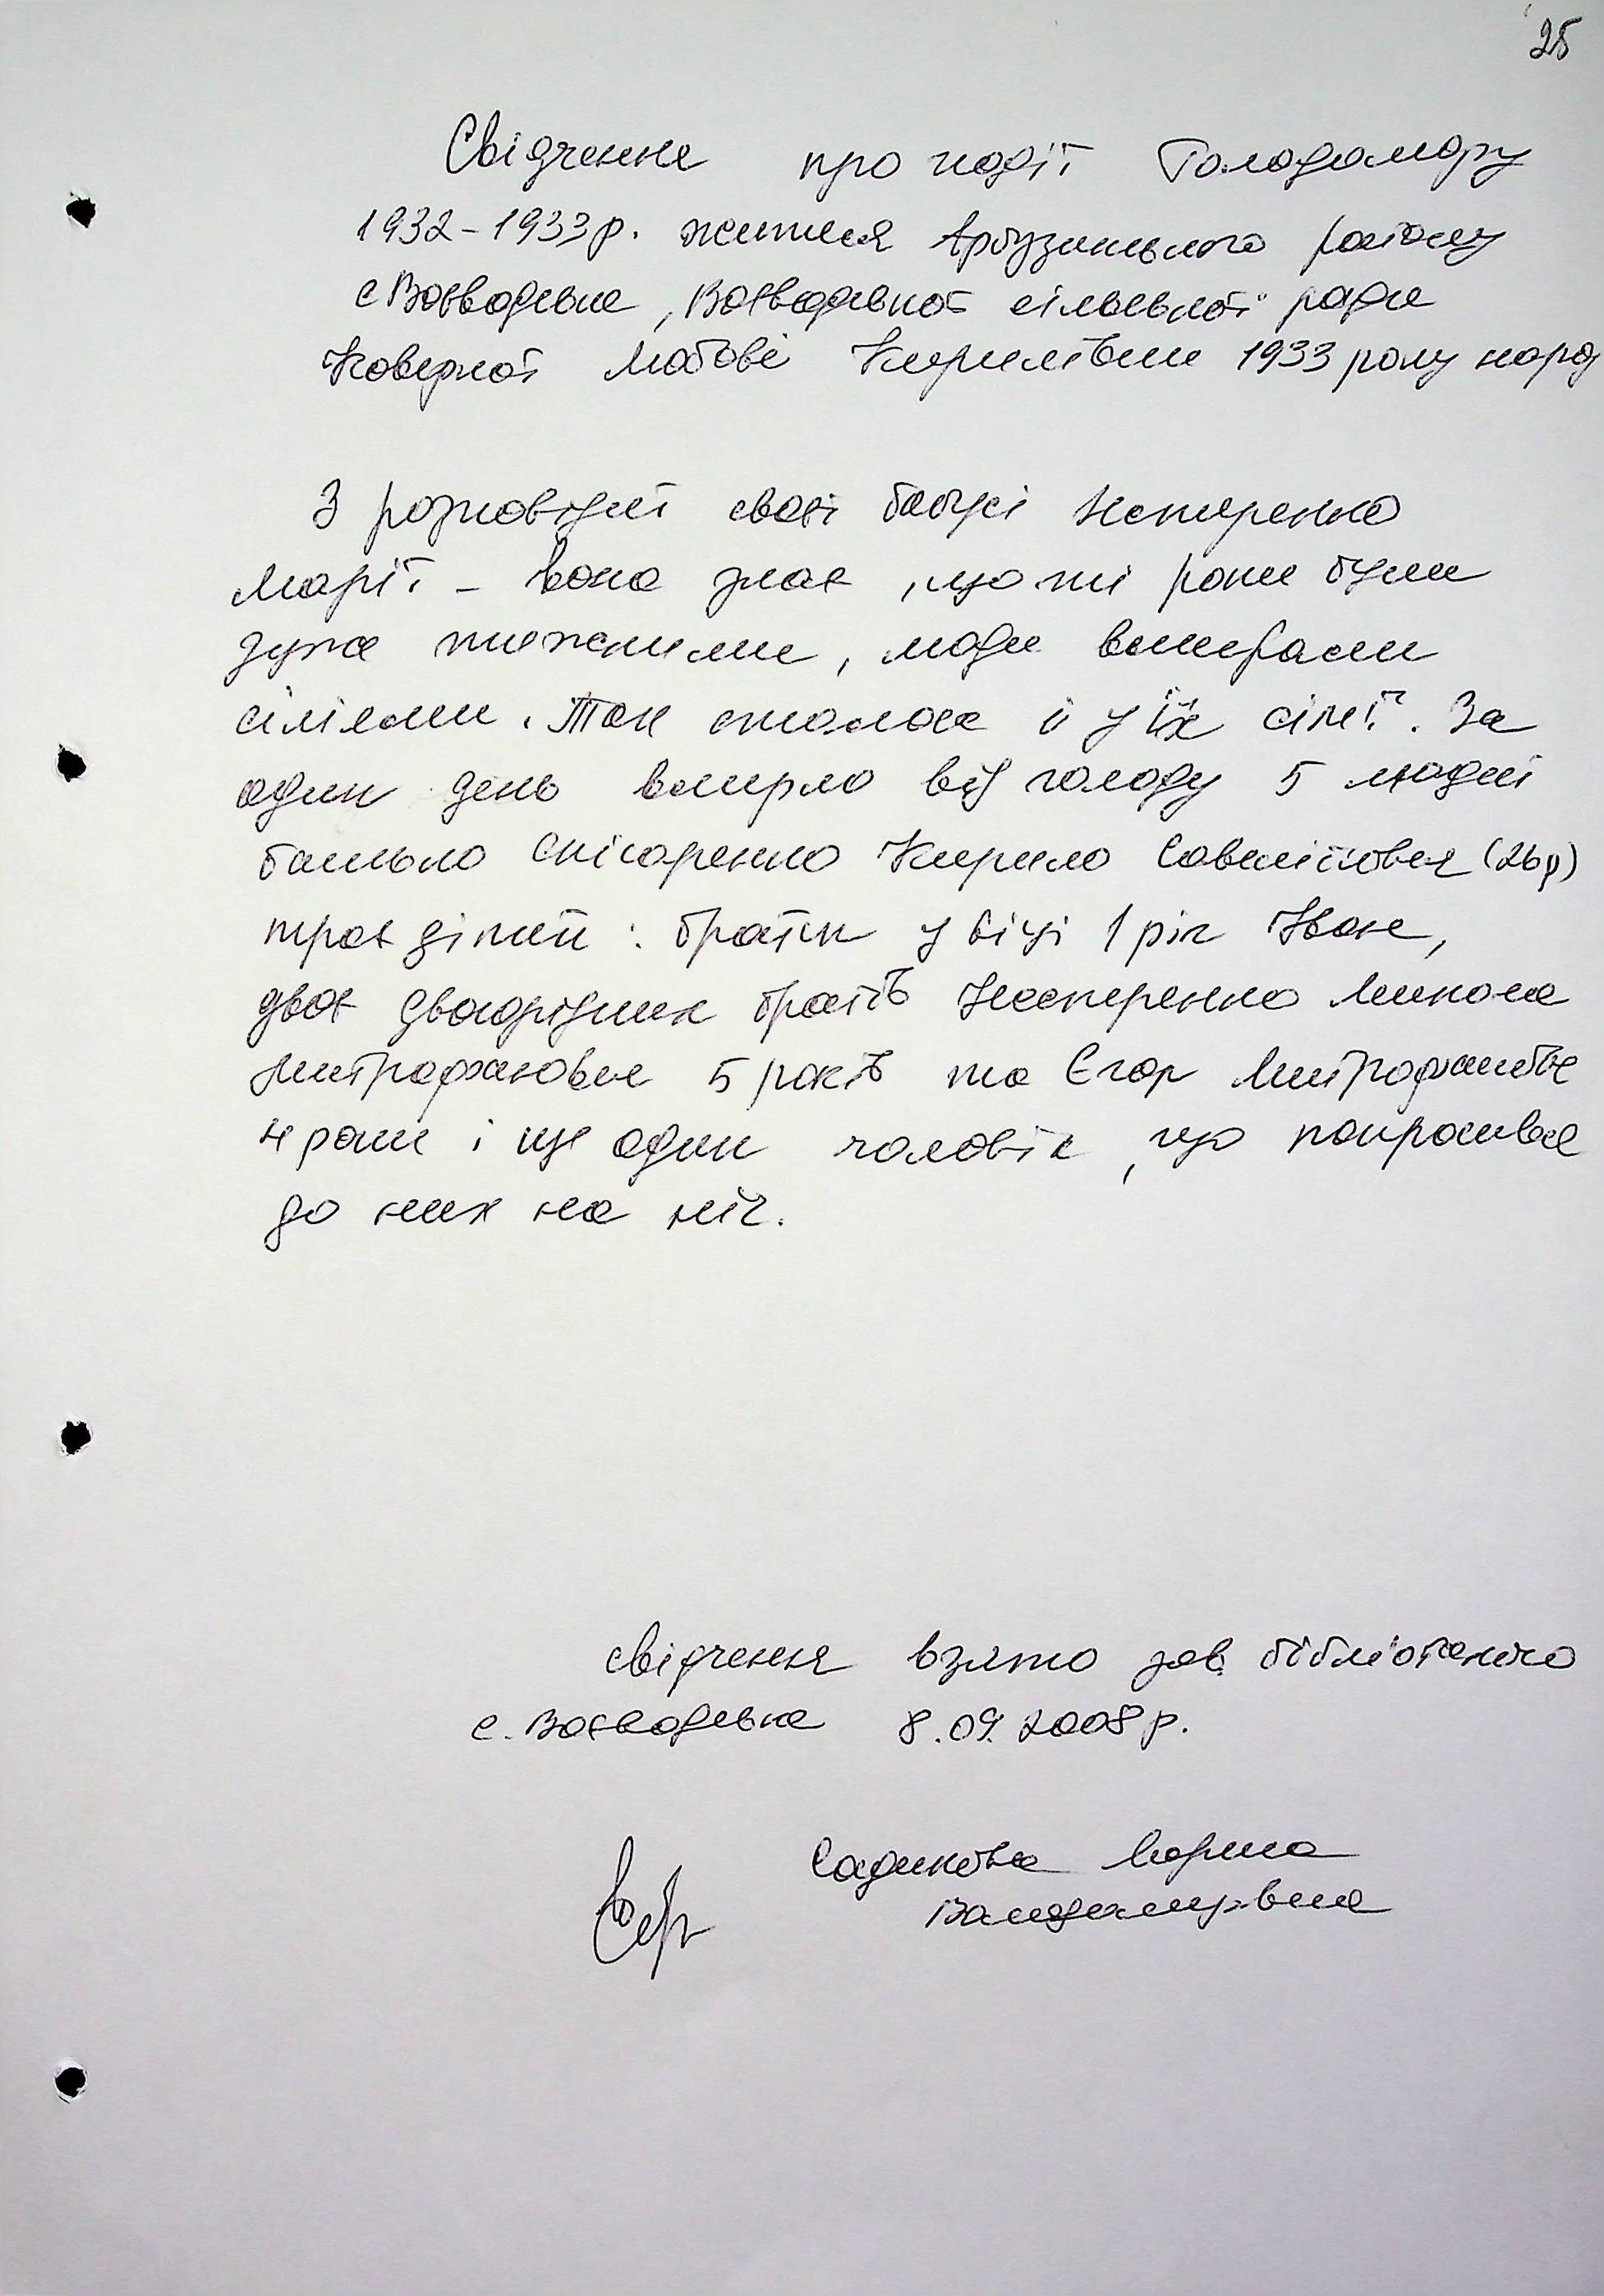 25
Свідчення про події Голодомору
1932-1933р. жителя Арбузинського району
с Воєводське, Воєводської сільської ради
Коверної Любові Кирилівни 1933 року народ
З розповідей своєї бабусі Нестеренко
Марії - вона знає, що ті роки були
дуже тяжкими, люди вмирали
сім'ями. Так сталося і у їх сім'ї. За
один день вмерло від голоду 5 людей
батько Снісаренко Кирило Савелійович (26р)
троє дітей: братик у віці 1 рік Іван,
двоє двоюрідних братів Нестеренко Микола
Митрофанович 5 років та Єгор Митрофанович
4 роки і ще один чоловік, що попросився
до них на ніч.
свідчення взято зав. бібліотекою
с. Воєводське 8.09.2008р.
Садикова Марина
Володимирівна